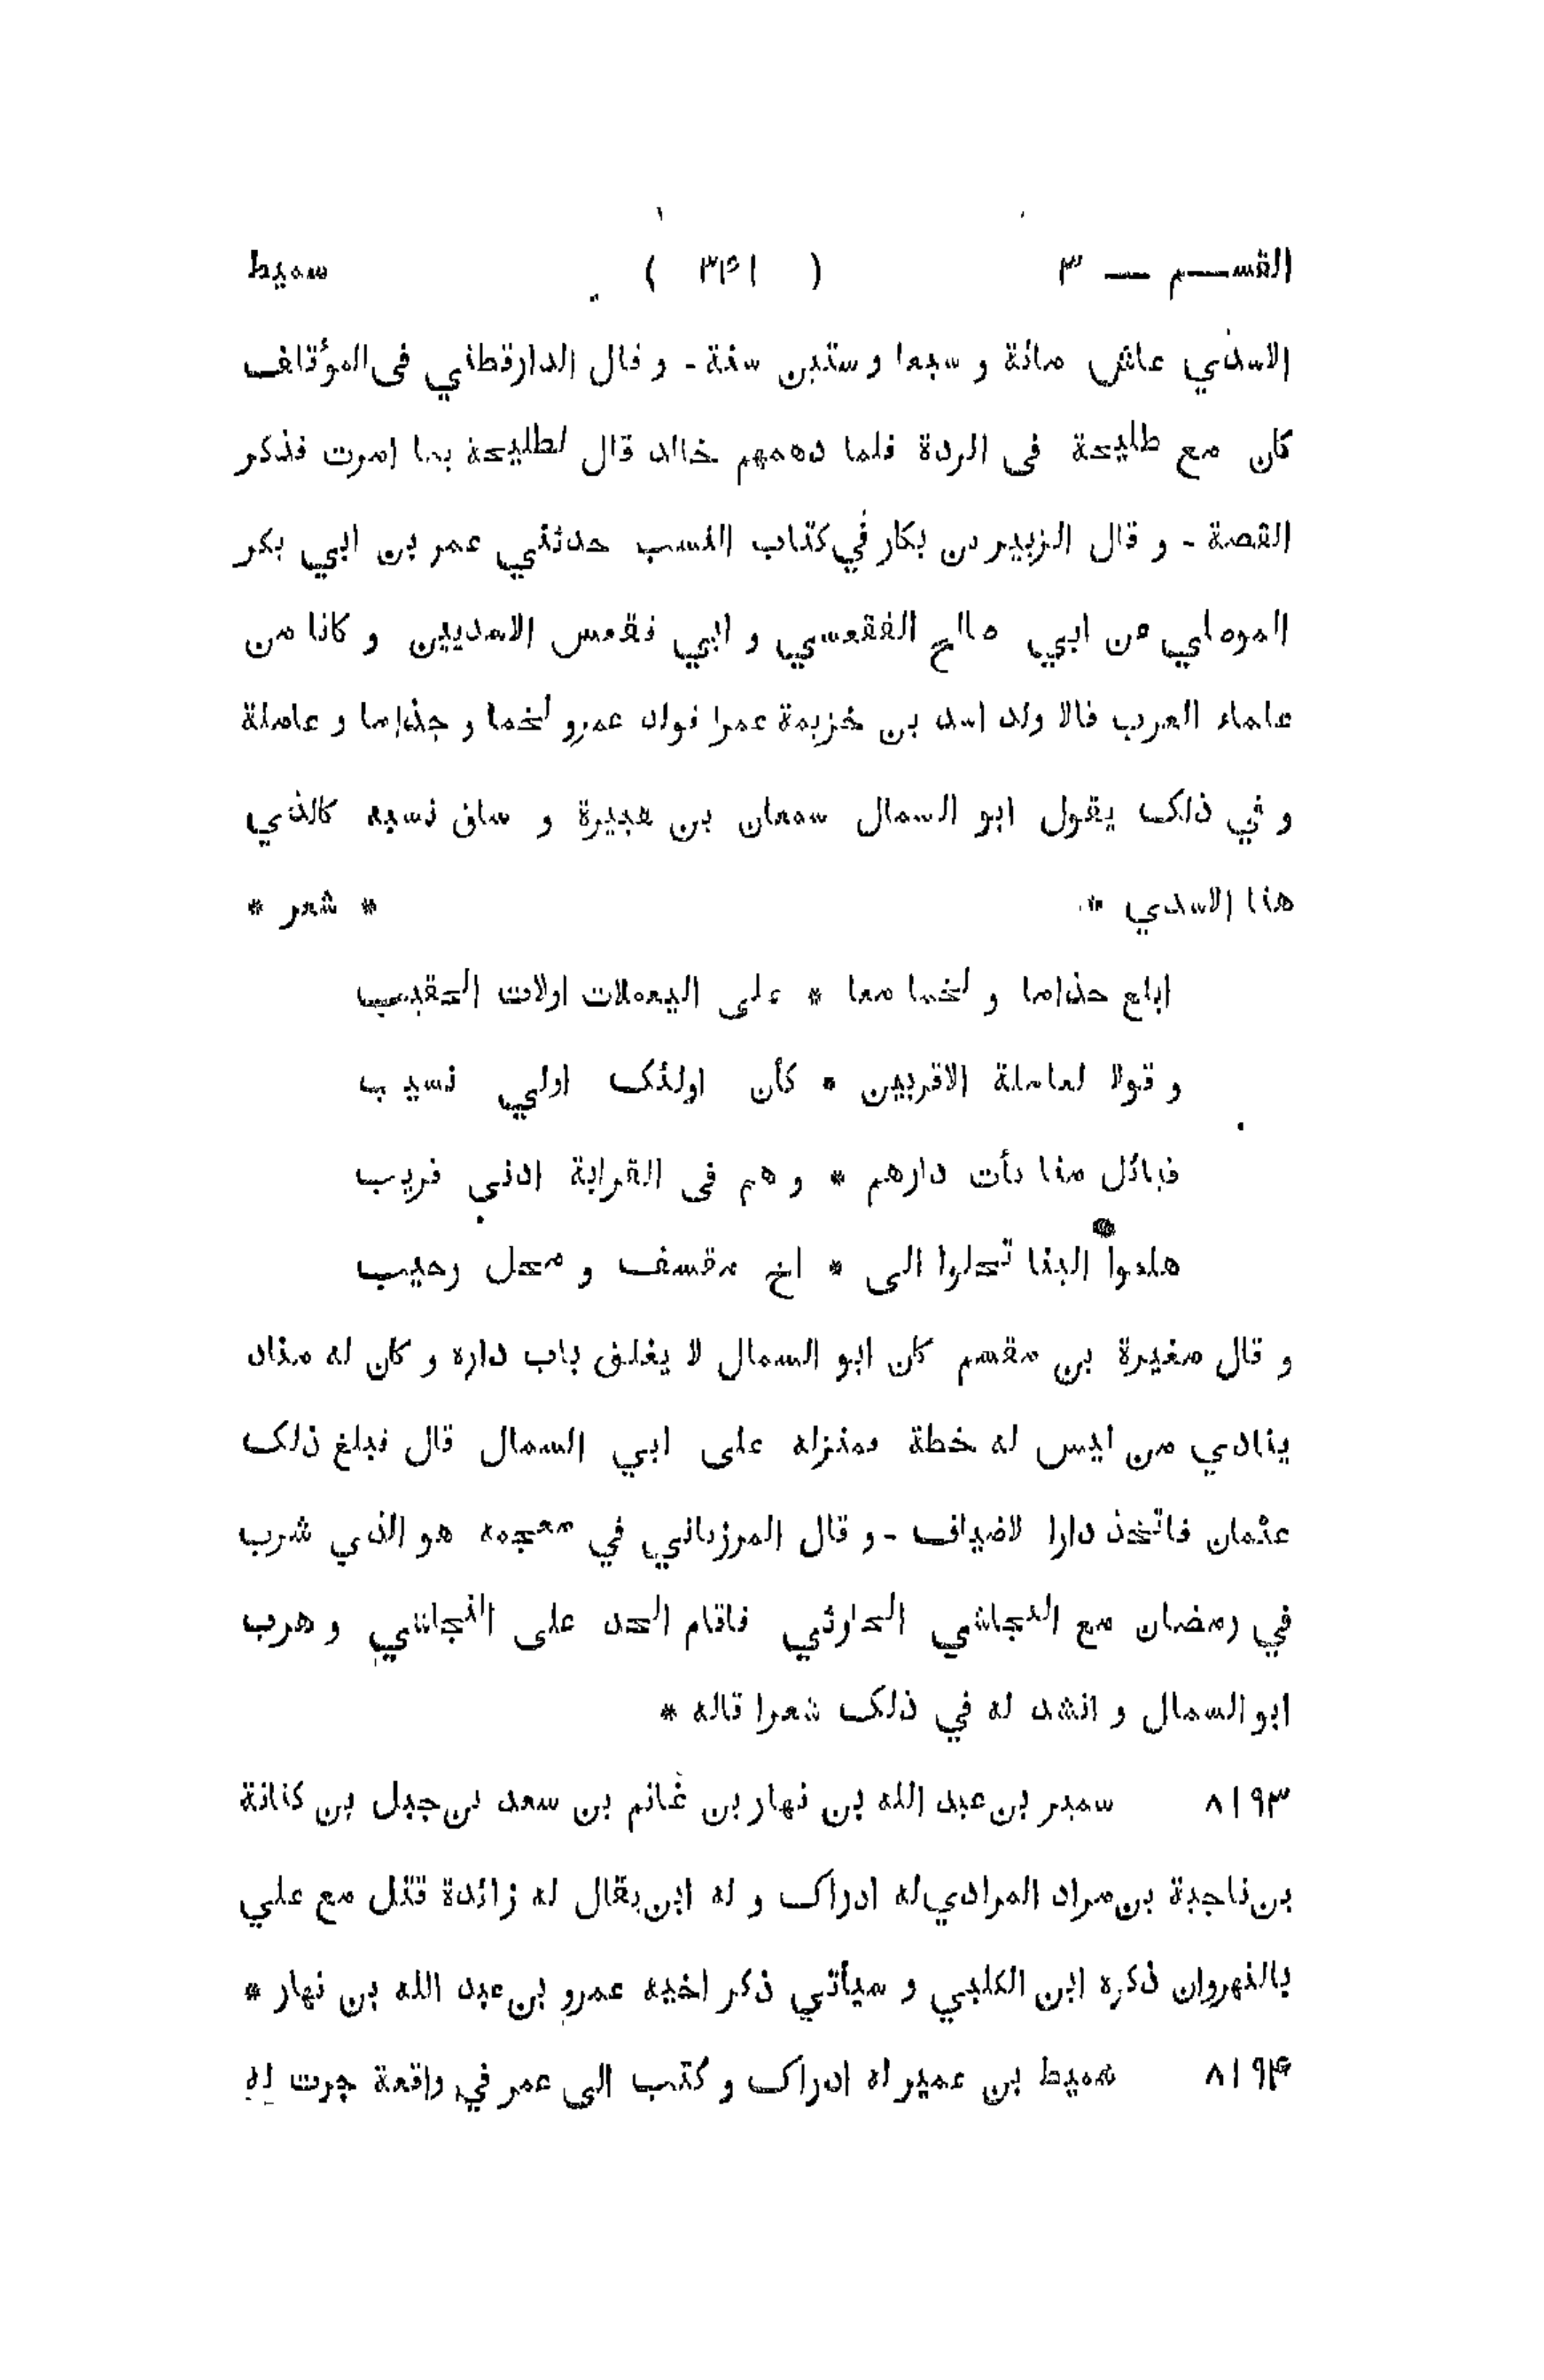 القســم — ٣ ( ٣٤١ ) سميط
الاسدي عاش مائة و سبعا و ستين سنة - و قال الدارقطني فى المؤتلف
كان مع طليحة فى الردة فلما دهمهم خالد قال لطليحة بما امرت فذكر
القصة - و قال الزبير بن بكار في كتاب النسب حدثني عمر بن ابي بكر
الموصلي عن ابي صالح الفقعسي و ابي فقعس الاسديين و كانا من
علماء العرب قالا ولد اسد بن خزيمة عمرا فولد عمرو لخما و جذاما و عاملة
و في ذلك يقول ابو السمال سمعان بن هبيرة و ساق نسبه كالذي
هنا الاسدي * * شعر *
ابلغ جذاما و لخما معا * على اليعملات اولات الحقيب
و قولا لعاملة الاقربين * كأن اولئك اولي نسيب
قبائل منا نأت دارهم * و هم فى القرابة ادنى قريب
هلموا الينا تحلوا الى * اخ مقسف و محل رحيب
و قال مغيرة بن مقسم كان ابو السمال لا يغلق باب داره و كان له مناد
ينادي من ليس له خطة فمنزله على ابي السمال قال فبلغ ذلك
عثمان فاتخذ دارا لاضياف - و قال المرزباني في معجمه هو الذي شرب
في رمضان مع النجاشي الحارثي فاقام الحد على النجاشي و هرب
ابو السمال و انشد له في ذلك شعرا قاله *
٨١٩٣ سمير بن عبد الله بن نهار بن غانم بن سعد بن جبل بن كنانة
بن ناجية بن مراد المرادي له ادراك و له ابن يقال له زائدة قتل مع علي
بالنهروان ذكره ابن الكلبي و سيأتي ذكر اخيه عمرو بن عبد الله بن نهار *
٨١٩٤ سميط بن عمير له ادراك و كتب الى عمر في واقعة جرت له